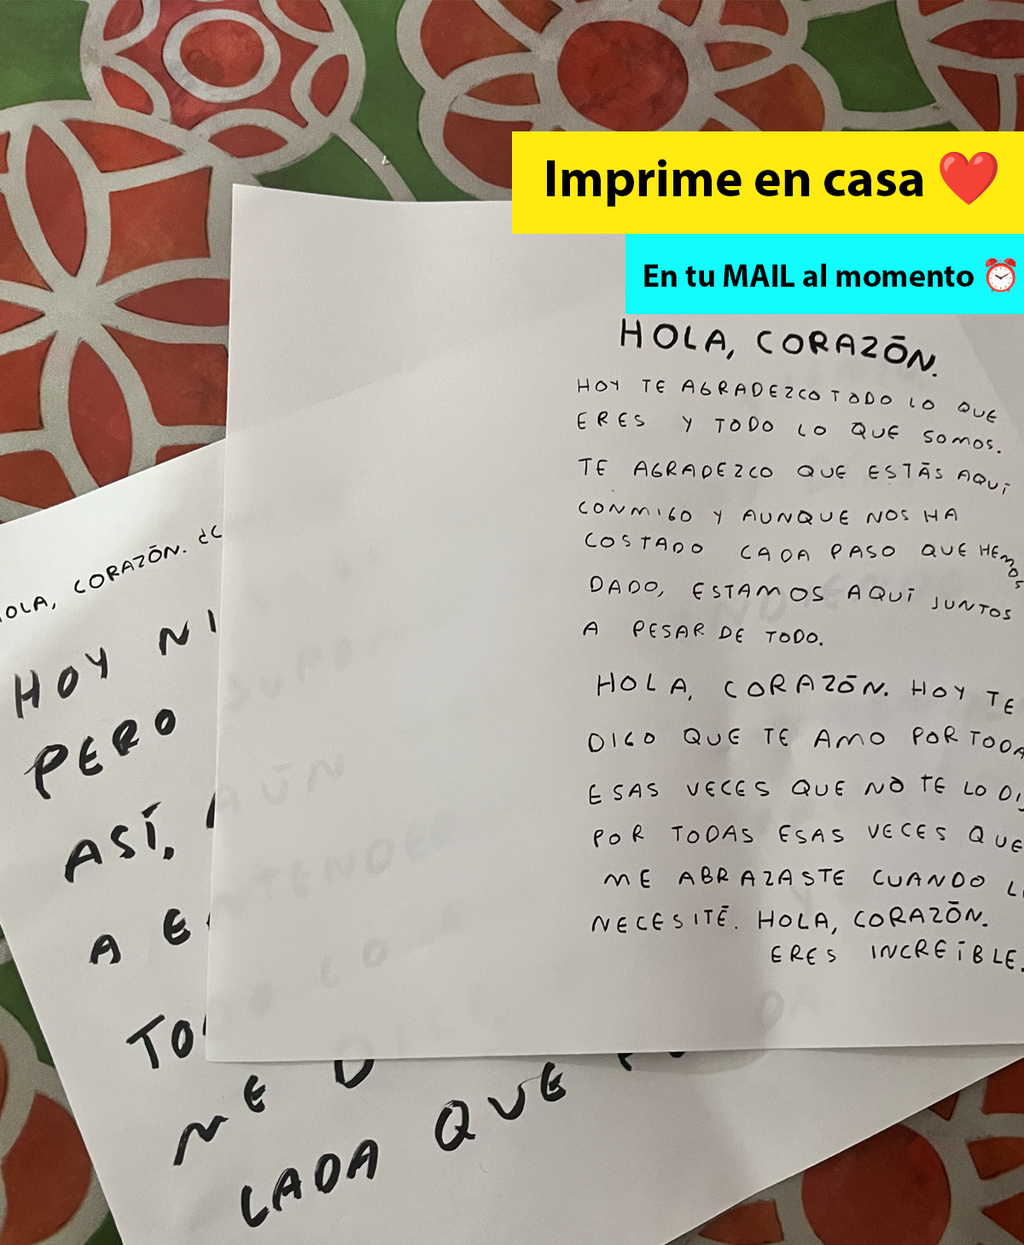 Imprime en casa ❤️
En tu MAIL al momento ⏰
HOLA, CORAZÓN.
HOY TE AGRADEZCO TODO LO QUE
ERES Y TODO LO QUE SOMOS.
TE AGRADEZCO QUE ESTÁS AQUÍ
CONMIGO Y AUNQUE NOS HA
COSTADO CADA PASO QUE HEMOS
DADO, ESTAMOS AQUÍ JUNTOS
A PESAR DE TODO.
HOLA, CORAZÓN. HOY TE
DIGO QUE TE AMO POR TODA
ESAS VECES QUE NO TE LO DI
POR TODAS ESAS VECES QUE
ME ABRAZASTE CUANDO L
NECESITÉ. HOLA, CORAZÓN.
ERES INCREÍBLE.
HOLA, CORAZÓN. ¿C
HOY NI
PERO
ASÍ,
A E
TO
ME DI
LADA QUE